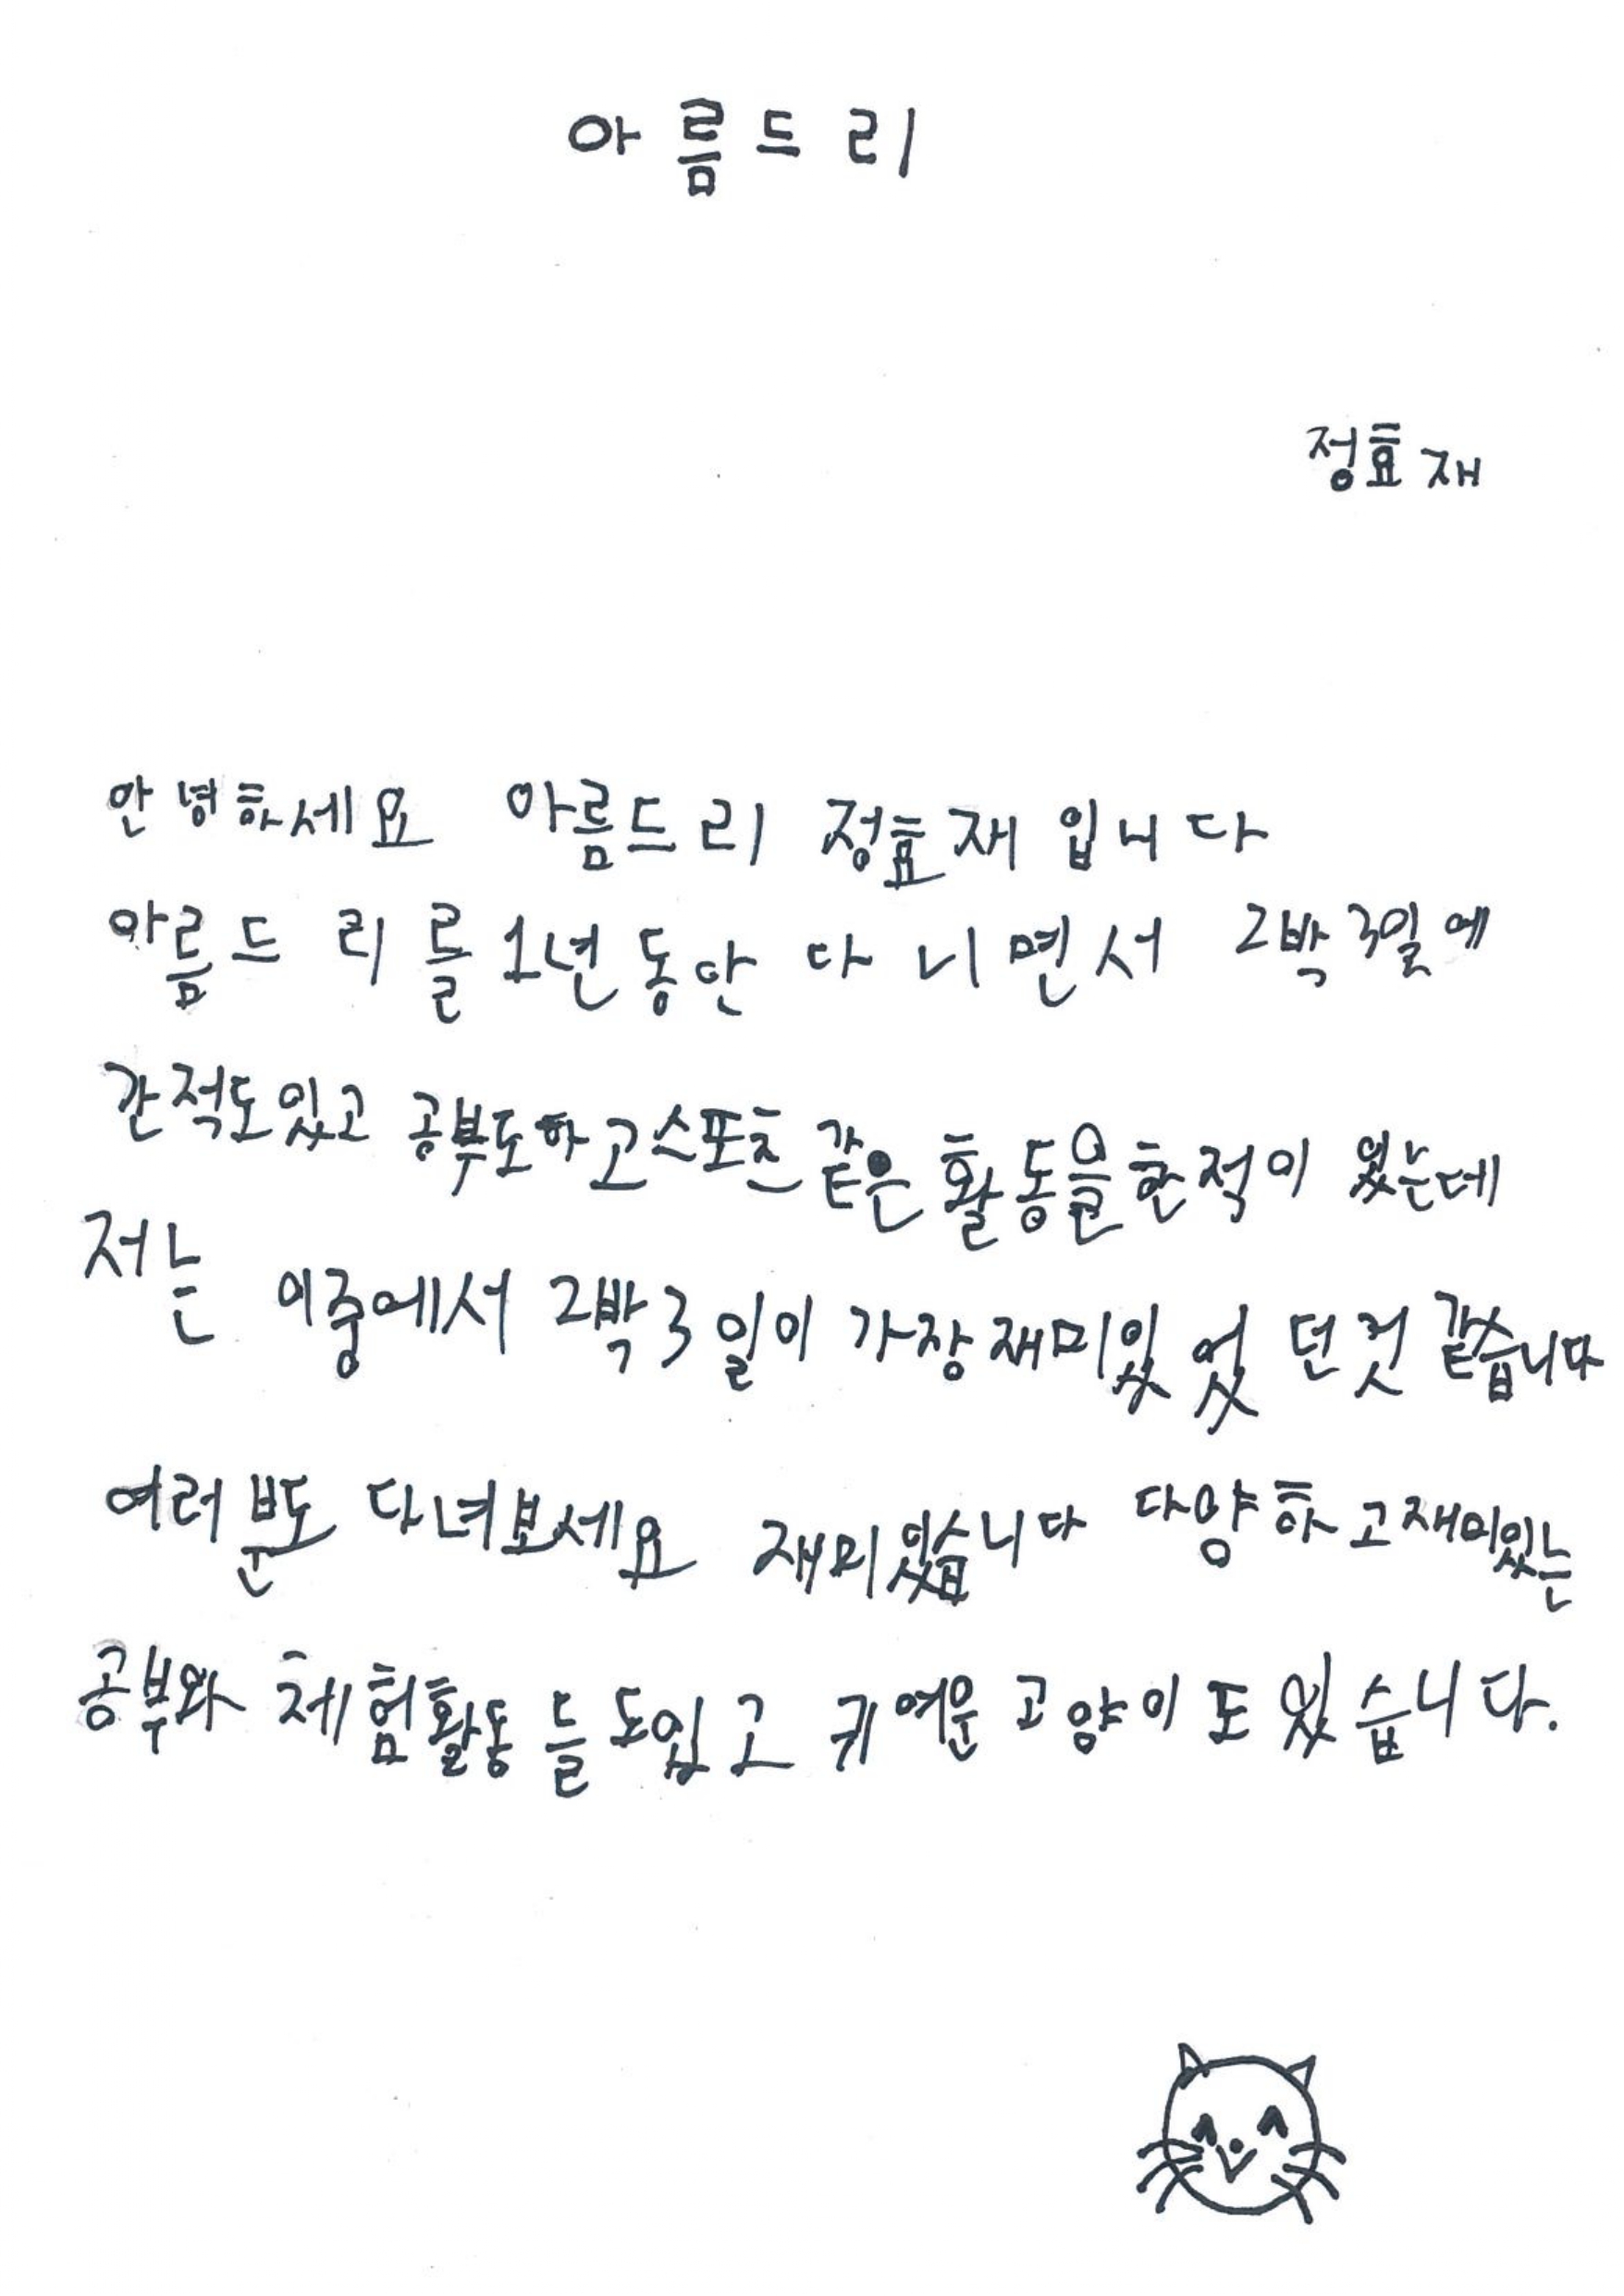 아름드리
정효재
안녕하세요 아름드리 정효재 입니다
아름드리를 1년동안 다니면서 2박3일에
간적도있고 공부도하고스포츠 같은 활동을한적이 있는데
저는 이중에서 2박3일이 가장재미있었던것 같습니다
여러분도 다녀보세요 재미있습니다 다양하고재미있는
공부와 체험활동들도있고 귀여운 고양이도 있습니다.